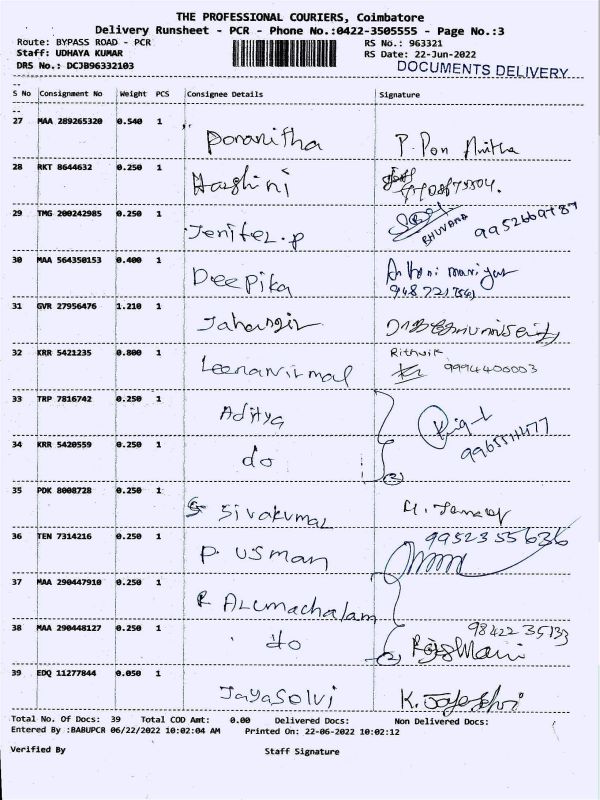 THE PROFESSIONAL COURIERS, Coimbatore
Delivery Runsheet - PCR - Phone No.:0422-3505555 - Page No.:3
Route: BYPASS ROAD - PCR
Staff: UDHAYA KUMAR
DRS No.: DCJB96332103
RS No.: 963321
RS Date: 22-Jun-2022
DOCUMENTS DELIVERY
S No Consignment No Weight PCS Consignee Details Signature
27 MAA 289265320 0.540 1 Poranitha P. Pon Anitha
28 RKT 8644632 0.250 1 Harshini
29 TMG 200242985 0.250 1 Jenifer.p BHUVANA 9952669787
30 MAA 564350153 0.400 1 Deepika
31 GVR 27956476 1.210 1 Jahangir
32 KRR 5421235 0.800 1 Leenanirmal Rithwik 9994400003
33 TRP 7816742 0.250 1 Aditya
34 KRR 5420559 0.250 1 do (2)
35 PDK 8008728 0.250 1 Sivakumar
36 TEN 7314216 0.250 1 P. USMAN 9952355636
37 MAA 290447910 0.250 1 R Arumachalam
38 MAA 290448127 0.250 1 do (2) 9842235133
39 EDQ 11277844 0.050 1 Jayaselvi
Total No. Of Docs: 39 Total COD Amt: 0.00 Delivered Docs: Non Delivered Docs:
Entered By :BABUPCR 06/22/2022 10:02:04 AM Printed On: 22-06-2022 10:02:12
Verified By Staff Signature